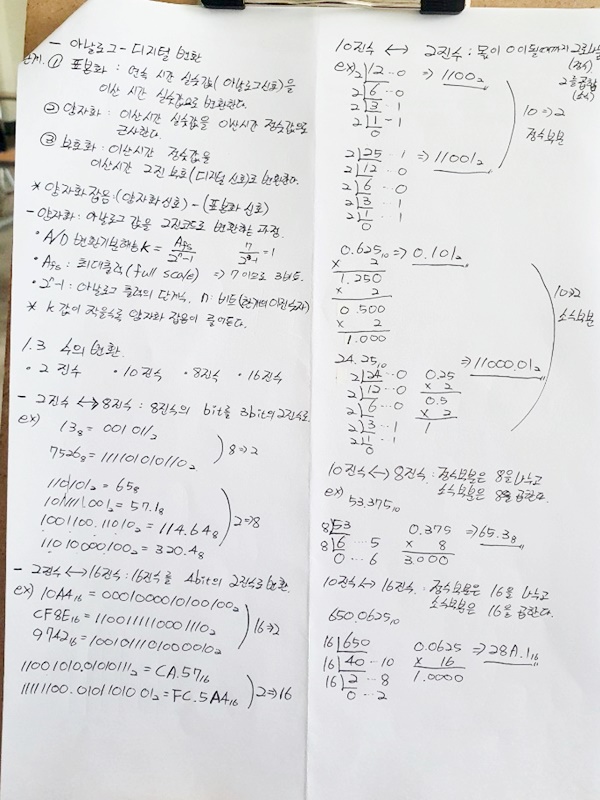 - 아날로그-디지털 변환
단계. ① 표본화 : 연속 시간 실숫값(아날로그신호)을
이산 시간 실숫값으로 변환한다.
② 양자화 : 이산시간 실숫값을 이산시간 정숫값으로
근사한다.
③ 부호화 : 이산시간 정숫값을
이산시간 2진 부호(디지털 신호)로 변환한다.
* 양자화 잡음 : (양자화 신호) - (표본화 신호)
- 양자화 : 아날로그 값을 2진코드로 변환하는 과정.
· A/D 변환기분해능 k = Afs / 2ⁿ-1    7 / 2³-1 = 1
· Afs : 최대출력 (full scale) ⇒ 7이므로 3비트.
· 2ⁿ-1 : 아날로그 출력의 단계수. n : 비트
* k 값이 작을수록 양자화 잡음이 줄어든다.
1.3 수의 변환.
· 2 진수 · 10진수 · 8진수 · 16진수
- 2진수 ↔ 8진수 : 8진수의 bit를 3bit의 2진수로.
ex) 13₈ = 001011₂
7526₈ = 111101010110₂
8⇒2
110101₂ = 65₈
101111.001₂ = 57.1₈
1001100.11010₂ = 114.64₈
11010000.100₂ = 320.4₈
2⇒8
- 2진수 ↔ 16진수 : 16진수를 4bit의 2진수로 변환.
ex) 10A4₁₆ = 0001000010100100₂
CF8E₁₆ = 1100111110001110₂
9742₁₆ = 1001011101000010₂
16⇒2
11001010.01010111₂ = CA.57₁₆
11111100.0101101001₂ = FC.5A4₁₆
2⇒16
10진수 ↔ 2진수 : 몫이 0이 될때까지 2로나눔
(정수)
2를곱함
(소수)
ex) 2 12 ··0 ⇒ 1100₂
2 6 ··0
2 3 ·1
2 1 ·1
0
10⇒2
정수부분
2 25 · 1 ⇒ 11001₂
2 12 ··0
2 6 ··0
2 3 ··1
2 1 ·1
0
0.625₁₀ ⇒ 0.101₂
× 2
1.250
× 2
0.500
× 2
1.000
10⇒2
소수부분
24.25₁₀ ⇒ 11000.01₂
2 24 ··0 0.25
2 12 ··0 × 2
2 6 ··0 0.5
2 3 ··1 × 2
2 1 ·1 1
0
10진수 ↔ 8진수 : 정수부분은 8을 나누고
소수부분은 8을 곱한다.
ex)
53.375₁₀
8 53 0.375 ⇒ 65.3₈
8 6 ··· 5 × 8
0 ··· 6 3.000
10진수 ↔ 16진수 : 정수부분은 16을 나누고
소수부분은 16을 곱한다.
650.0625₁₀
16 650 0.0625 ⇒ 28A.1₁₆
16 40 ··10 × 16
16 2 ··8 1.0000
0 ··2